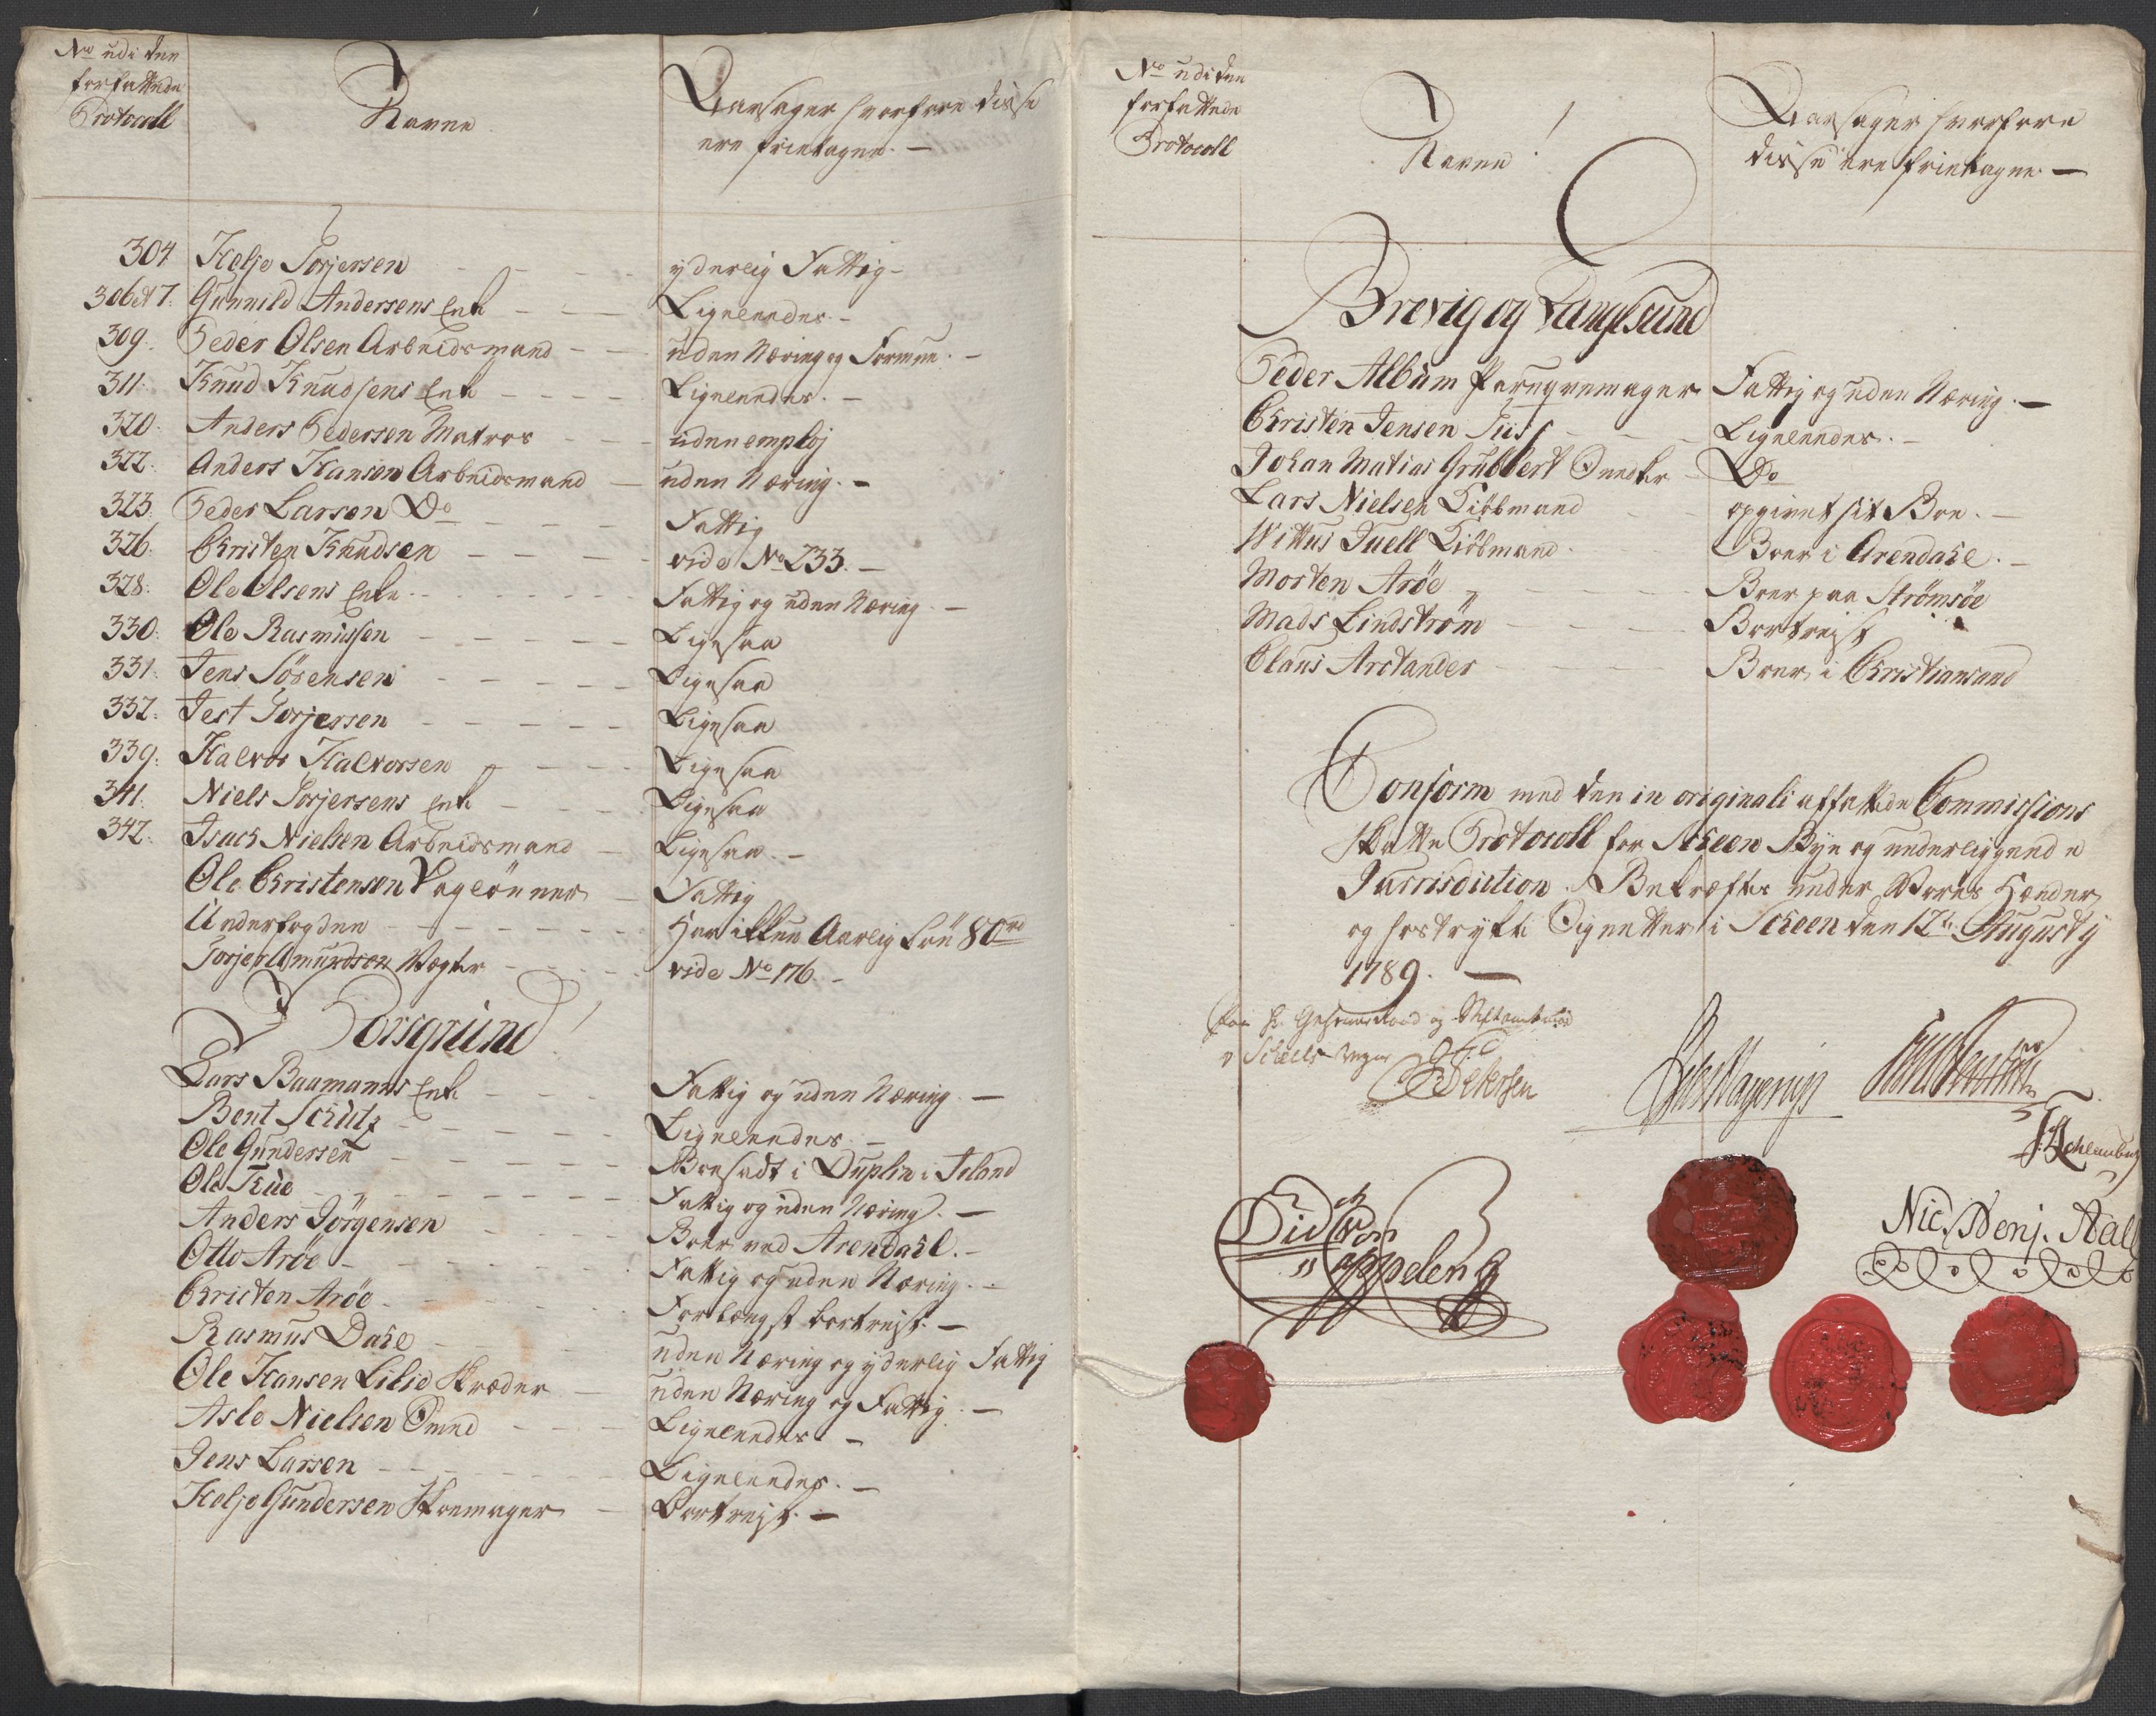 No udi den
forfattede
Protocoll
Navne
Aarsager hvorfore disse
ere frietagne. —
304 Helje Torjersen - - - yderlig Fattig -
306 et 7. Gunnild Andersens Enke - - - Ligeleedes. -
309. Peder Olsen Arbeidsmand - - uden Næring og Formue. -
311. Knud Knudsens Enke - - - - Ligeleedes. -
320. Anders Pedersen Matros - - - uden emploj
322. Anders Hansen Arbeidsmand - uden Næring. -
323. Peder Larsen Do - - - - Fattig
326. Christen Knudsen - - - - - vide No 233. -
328. Ole Olsens Enke. - - - - - Fattig og uden Næring. -
330. Ole Rasmussen - - - - - Ligesaa
331. Jens Sörensen - - - - - Ligesaa
332. Jest Torjersen - - - - - Ligesaa
339. Halvor Halvorsen - - - - Ligesaa
341. Niels Torjersens Enke - - - Ligesaa
342. Isach Nielsen Arbeidsmand - Ligesaa. -
Ole Christensen Daglönner - Fattig
Underfogden - - - - - - Har ikkun Aarlig Lön 80 rd
Torje Amundsen Vægter - - - - vide No 176. -
Porsgrund
Lars Baamanns Enke - - - Fattig og uden Næring. -
Bent Schütz - - - - - - Ligeleedes. -
Ole Gundersen - - - - - Boesadt i Duplin i Irland
Ole - - - - - - Fattig og uden Næring. -
Anders Jörgensen - - - - Boer ved Arendahl. -
Otto Aröe - - - - - - Fattig og uden Næring. -
Christen Aröe - - - - - - Forlængst bortrejst. -
Rasmus Dahl - - - - - - uden Næring og yderlig Fattig
Ole Hansen Lilie Skræder - uden Næring og Fattig. -
Asle Nielsen Smed - - - Ligeleedes. -
Jens Larsen - - - - - - Ligeleedes. -
Helje Gundersen Skoemager - Bortrejst. -
No udi den
forfattede
Protocoll
Navne
Aarsager hvorfore
disse ere frietagne —
Brevig og Langesund
Peder Album Paruqvemager Fattig og uden Næring. -
Christen Jensen - - - Ligeleedes. -
Johan Matias Grubbert Snedker - Do
Lars Nielsen Kiöbmand - - opgivet sit Boe. -
Wittus Juell Kiöbmand. - - Boer i Arendahl. -
Morten Aröe - - - - Boer paa Strömsöe
Mads Lindström - - - - Bortrejst
Claus Arctander - - - - Boer i Christiansand
Conform med den in originali affattede Commissions
Skatte Protocoll for Scheen Bye og underliggende
Jurrisdiction. Bekræfter under Vores Hænder
og hostrykte Signetter i Scheen den 12te Augusty
1789. —
Paa Hr. Geheimeraad og Stiftamtmand
v Scheels Vegne
Petersen
Did von
Cappelen
Nic. Benj. Aall